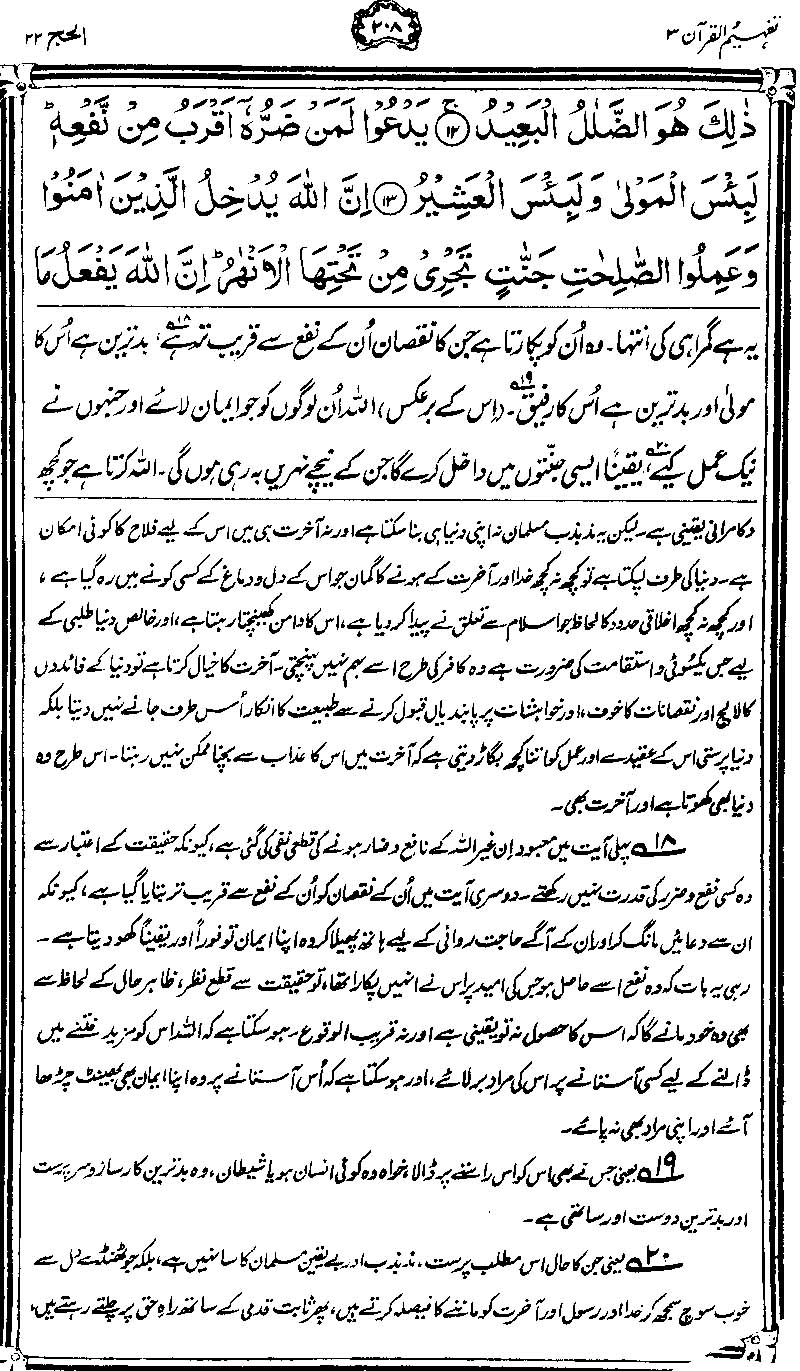 تفہیم القرآن ۳
۲۰۸
الحج ۲۲
ذٰلِكَ هُوَ الضَّلٰلُ الْبَعِيْدُ ﴿۱۲﴾ۚ يَدْعُوْا لَمَنْ ضَرُّهٗٓ اَقْرَبُ مِنْ نَّفْعِهٖؕ
لَبِئْسَ الْمَوْلٰى وَلَبِئْسَ الْعَشِيْرُ ﴿۱۳﴾ اِنَّ اللّٰهَ يُدْخِلُ الَّذِيْنَ اٰمَنُوْا
وَعَمِلُوا الصّٰلِحٰتِ جَنّٰتٍ تَجْرِيْ مِنْ تَحْتِهَا الْاَنْهٰرُؕ اِنَّ اللّٰهَ يَفْعَلُ مَا
یہ ہے گمراہی کی انتہا۔ وہ اُن کو پکارتا ہے جن کا نقصان اُن کے نفع سے قریب تر ہے۱۸، بدترین ہے اُس کا
مولیٰ اور بدترین ہے اُس کا رفیق۱۹۔ (اِس کے برعکس) اللہ اُن لوگوں کو جو ایمان لائے اور جنہوں نے
نیک عمل کیے۲۰، یقیناً ایسی جنتوں میں داخل کرے گا جن کے نیچے نہریں بہ رہی ہوں گی۔ اللہ کرتا ہے جو کچھ
دکامرانی یقینی ہے۔ لیکن یہ مذبذب مسلمان نہ اپنی دنیا ہی بنا سکتا ہے اور نہ آخرت ہی میں اس کے لیے فلاح کا کوئی امکان
ہے۔ دنیا کی طرف لپکتا ہے تو کچھ نہ کچھ خدا اور آخرت کے ہونے کا گمان جو اس کے دل و دماغ کے کسی کونے میں رہ گیا ہے،
اور کچھ نہ کچھ اخلاقی حدود کا لحاظ جو اسلام سے تعلق نے پیدا کر دیا ہے، اس کا دامن کھینچتا رہتا ہے، اور خالص دنیا طلبی کے
لیے جس یکسوئی و استقامت کی ضرورت ہے وہ کافر کی طرح اسے بہم نہیں پہنچتی۔ آخرت کا خیال کرتا ہے تو دنیا کے فائدوں
کا لالچ اور نقصانات کا خوف، اور خواہشات پر پابندیاں قبول کرنے سے طبیعت کا انکار اُس طرف جانے نہیں دیتا بلکہ
دنیا پرستی اس کے عقیدے اور عمل کو اتنا کچھ بگاڑ دیتی ہے کہ آخرت میں اس کا عذاب سے بچنا ممکن نہیں رہتا۔ اس طرح وہ
دنیا بھی کھوتا ہے اور آخرت بھی۔
۱۸ پہلی آیت میں معبودانِ غیر اللہ کے نافع و ضار ہونے کی قطعی نفی کی گئی ہے، کیونکہ حقیقت کے اعتبار سے
وہ کسی نفع و ضرر کی قدرت نہیں رکھتے۔ دوسری آیت میں اُن کے نقصان کو اُن کے نفع سے قریب تر بتایا گیا ہے، کیونکہ
ان سے دعائیں مانگ کر اور ان کے آگے حاجت روائی کے لیے ہاتھ پھیلا کر وہ اپنا ایمان تو فوراً اور یقیناً کھو دیتا ہے۔
رہی یہ بات کہ وہ نفع اسے حاصل ہو جس کی امید پر اس نے انہیں پکارا تھا، تو حقیقت سے قطع نظر، ظاہر حال کے لحاظ سے
بھی وہ خود مانے گا کہ اس کا حصول نہ تو یقینی ہے اور نہ قریب الوقوع۔ ہو سکتا ہے کہ اللہ اس کو مزید فتنے میں
ڈالنے کے لیے کسی آستانے پر اس کی مراد بر لائے، اور ہو سکتا ہے کہ اُس آستانے پر وہ اپنا ایمان بھی بھینٹ چڑھا
آئے اور اپنی مراد بھی نہ پائے۔
۱۹ یعنی جس نے بھی اس کو اس راستے پر ڈالا، خواہ وہ کوئی انسان ہو یا شیطان، وہ بدترین کارساز و سرپرست
اور بدترین دوست اور ساتھی ہے۔
۲۰ یعنی جن کا حال اس مطلب پرست، مذبذب اور بے یقین مسلمان کا سا نہیں ہے، بلکہ جو ٹھنڈے دل سے
خوب سوچ سمجھ کر خدا اور رسول اور آخرت کو ماننے کا فیصلہ کرتے ہیں، پھر ثابت قدمی کے ساتھ راہِ حق پر چلتے رہتے ہیں،